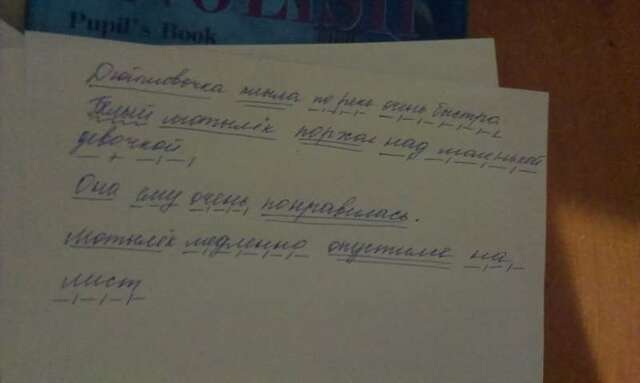 Pupil's Book
Дюймовочка плыла по реке очень быстро
Белый мотылёк порхал над маленькой
девочкой
Она ему очень понравилась.
Мотылёк медленно опустился на
лист